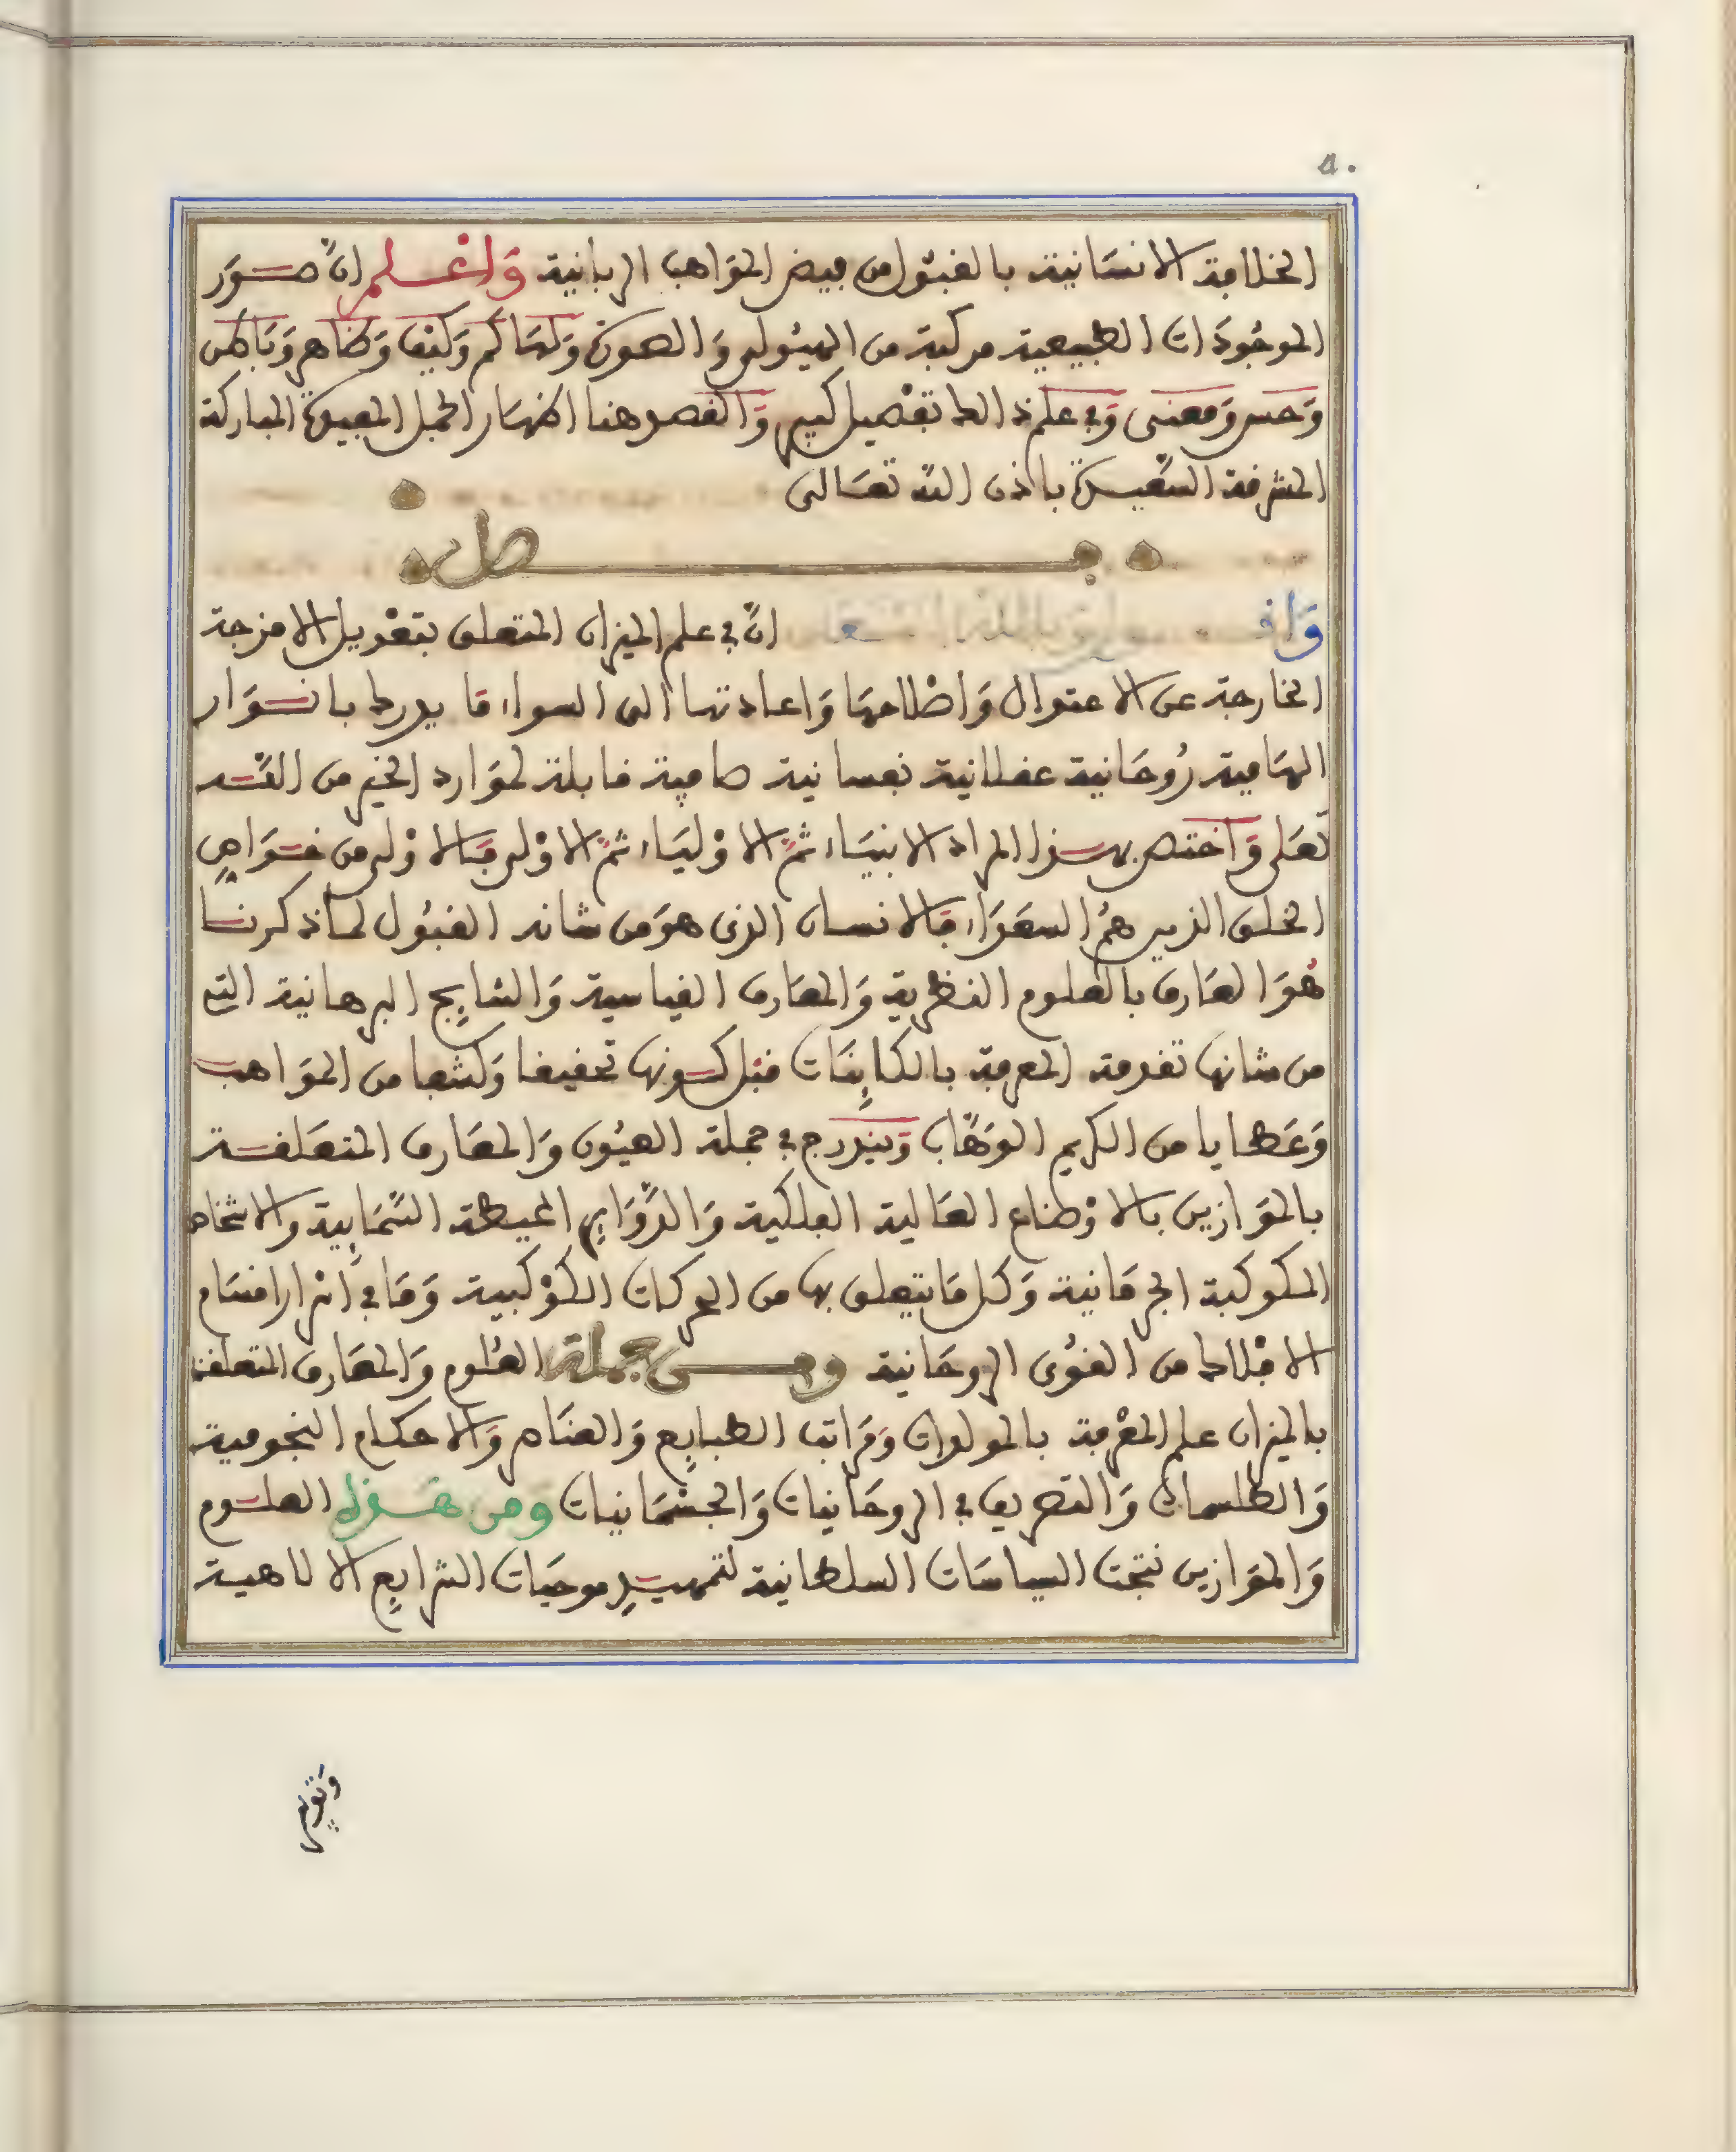 ٥٠
الخلافة الانسانية بالقبول من فيض المواهب الربانية وَاعْلم انّ صوَر
الموجُودَات الطبيعية مركبة من الهيُولى وَالصورَة وَلهَا كم وَكيْف وَظاهر وَبَاطن
وَحس وَمعنى وَفي علم ذالك تفْصيل كبير وَالقصد هنا اظهَار الجمل المفيدة المباركة
المشرفة السّعيدة باذن الله تعَالى
فصل
وَاقول وبالله المستعان انّ في علم الميزان المتعلق بتعْديل الامزجة
الخارجة عن الاعتدال وَاصْلاحهَا وَاعادتها الى السواء مَا يدرك بانوَار
الهَامية رُوحَانية عقلانية نفسانية صافية قابلة لموَارد الخير من الله
تعَلى وَاختص بهذا المراد الانبيَاء ثمّ الاوْليَاء ثمّ الاوْلى فَالاوْلى من خوَاصِ
الخلق الذين همُ السعَدَاء فَالانسان الذي هوَ من شانه القبُول لما ذكرنا
هُوَ العَارف بالعلوم النظرية وَالمعَارف القياسية وَالنتايِج البرهانية التي
من شانها تقدمة المعرفة بالكايِنَات قبْل كونها تحقيقا وَكشفا من الموَاهب
وَعَطايا من الكريم الوَهّاب وَيندرج في جملة العيُون وَالمعَارف المتعَلقة
بالموَازين بالاوْضاع العَالية الفلكية وَالدّوَايِر المحيطة السّمَايِية والاشخاص
المكوكبة الجرمَانية وَكل مَا يتعلق بها من الحركات الكوْكبية وَمَا في ادْرار اقسَام
الافْلاك من القوُى الروحَانية ومن جملة العُلوم وَالمعَارف المتعلقة
بالميزان علم المعْرفة بالمولدات وَمرَاتب الطبايِع وَالعنَاصر وَالاحكام النجومية
وَالطلسمات وَالتصريف في الروحَانيات وَالجسْمَانيات ومن هذه العلوم
وَالموَازين نتجت السياسَات السلطانية لتمهيدِ موجبَات الشرايِع الالاهية
وَتقرير